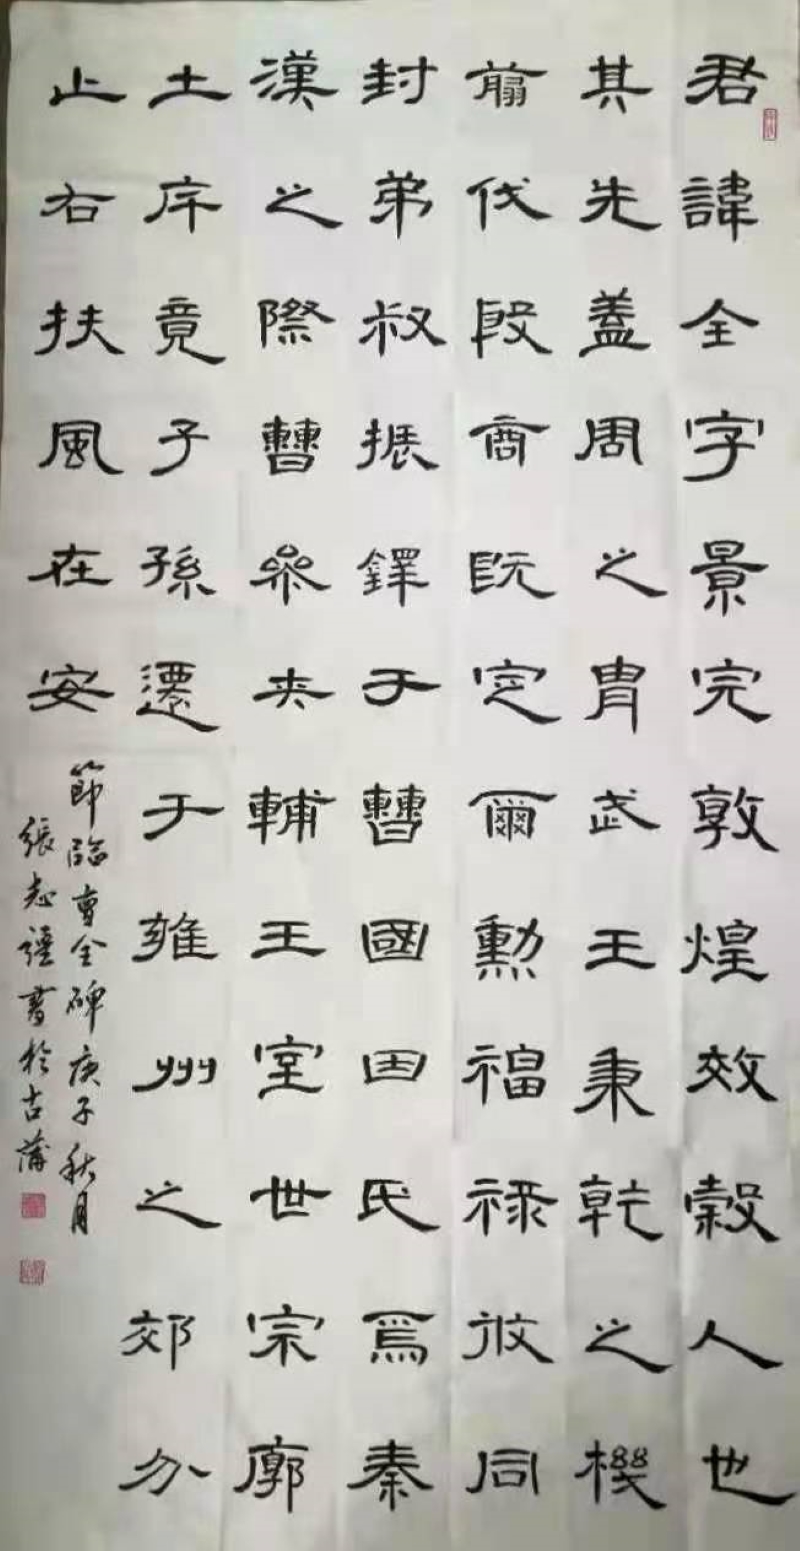 君諱全字景完敦煌效穀人也
其先蓋周之胄武王秉乾之機
翦伐殷商既定爾勳福祿攸同
封弟叔振鐸于曹國因氏焉秦
漢之際曹參夾輔王室世宗廓
土序竟子孫遷于雍州之郊分
止右扶風在安
節臨曹全碑庚子秋月
張志書於古蒲